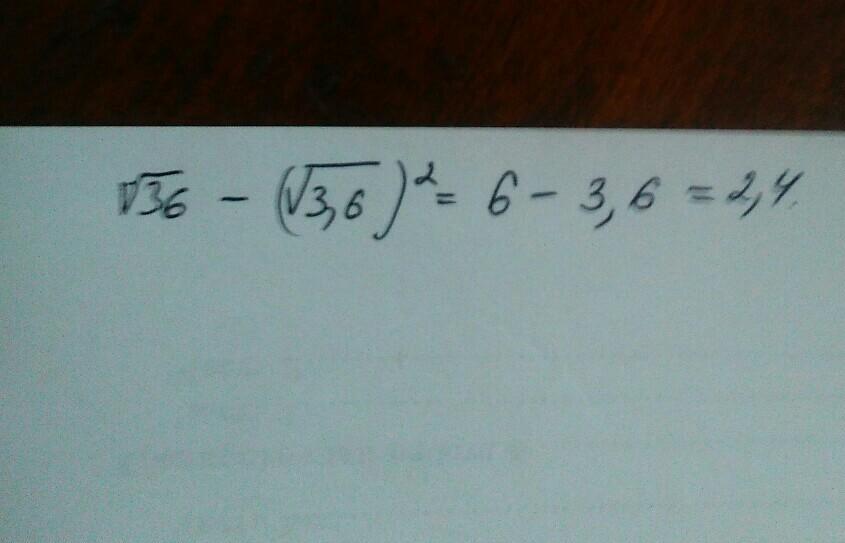 √36 - (√3,6)² = 6 - 3,6 = 2,4.